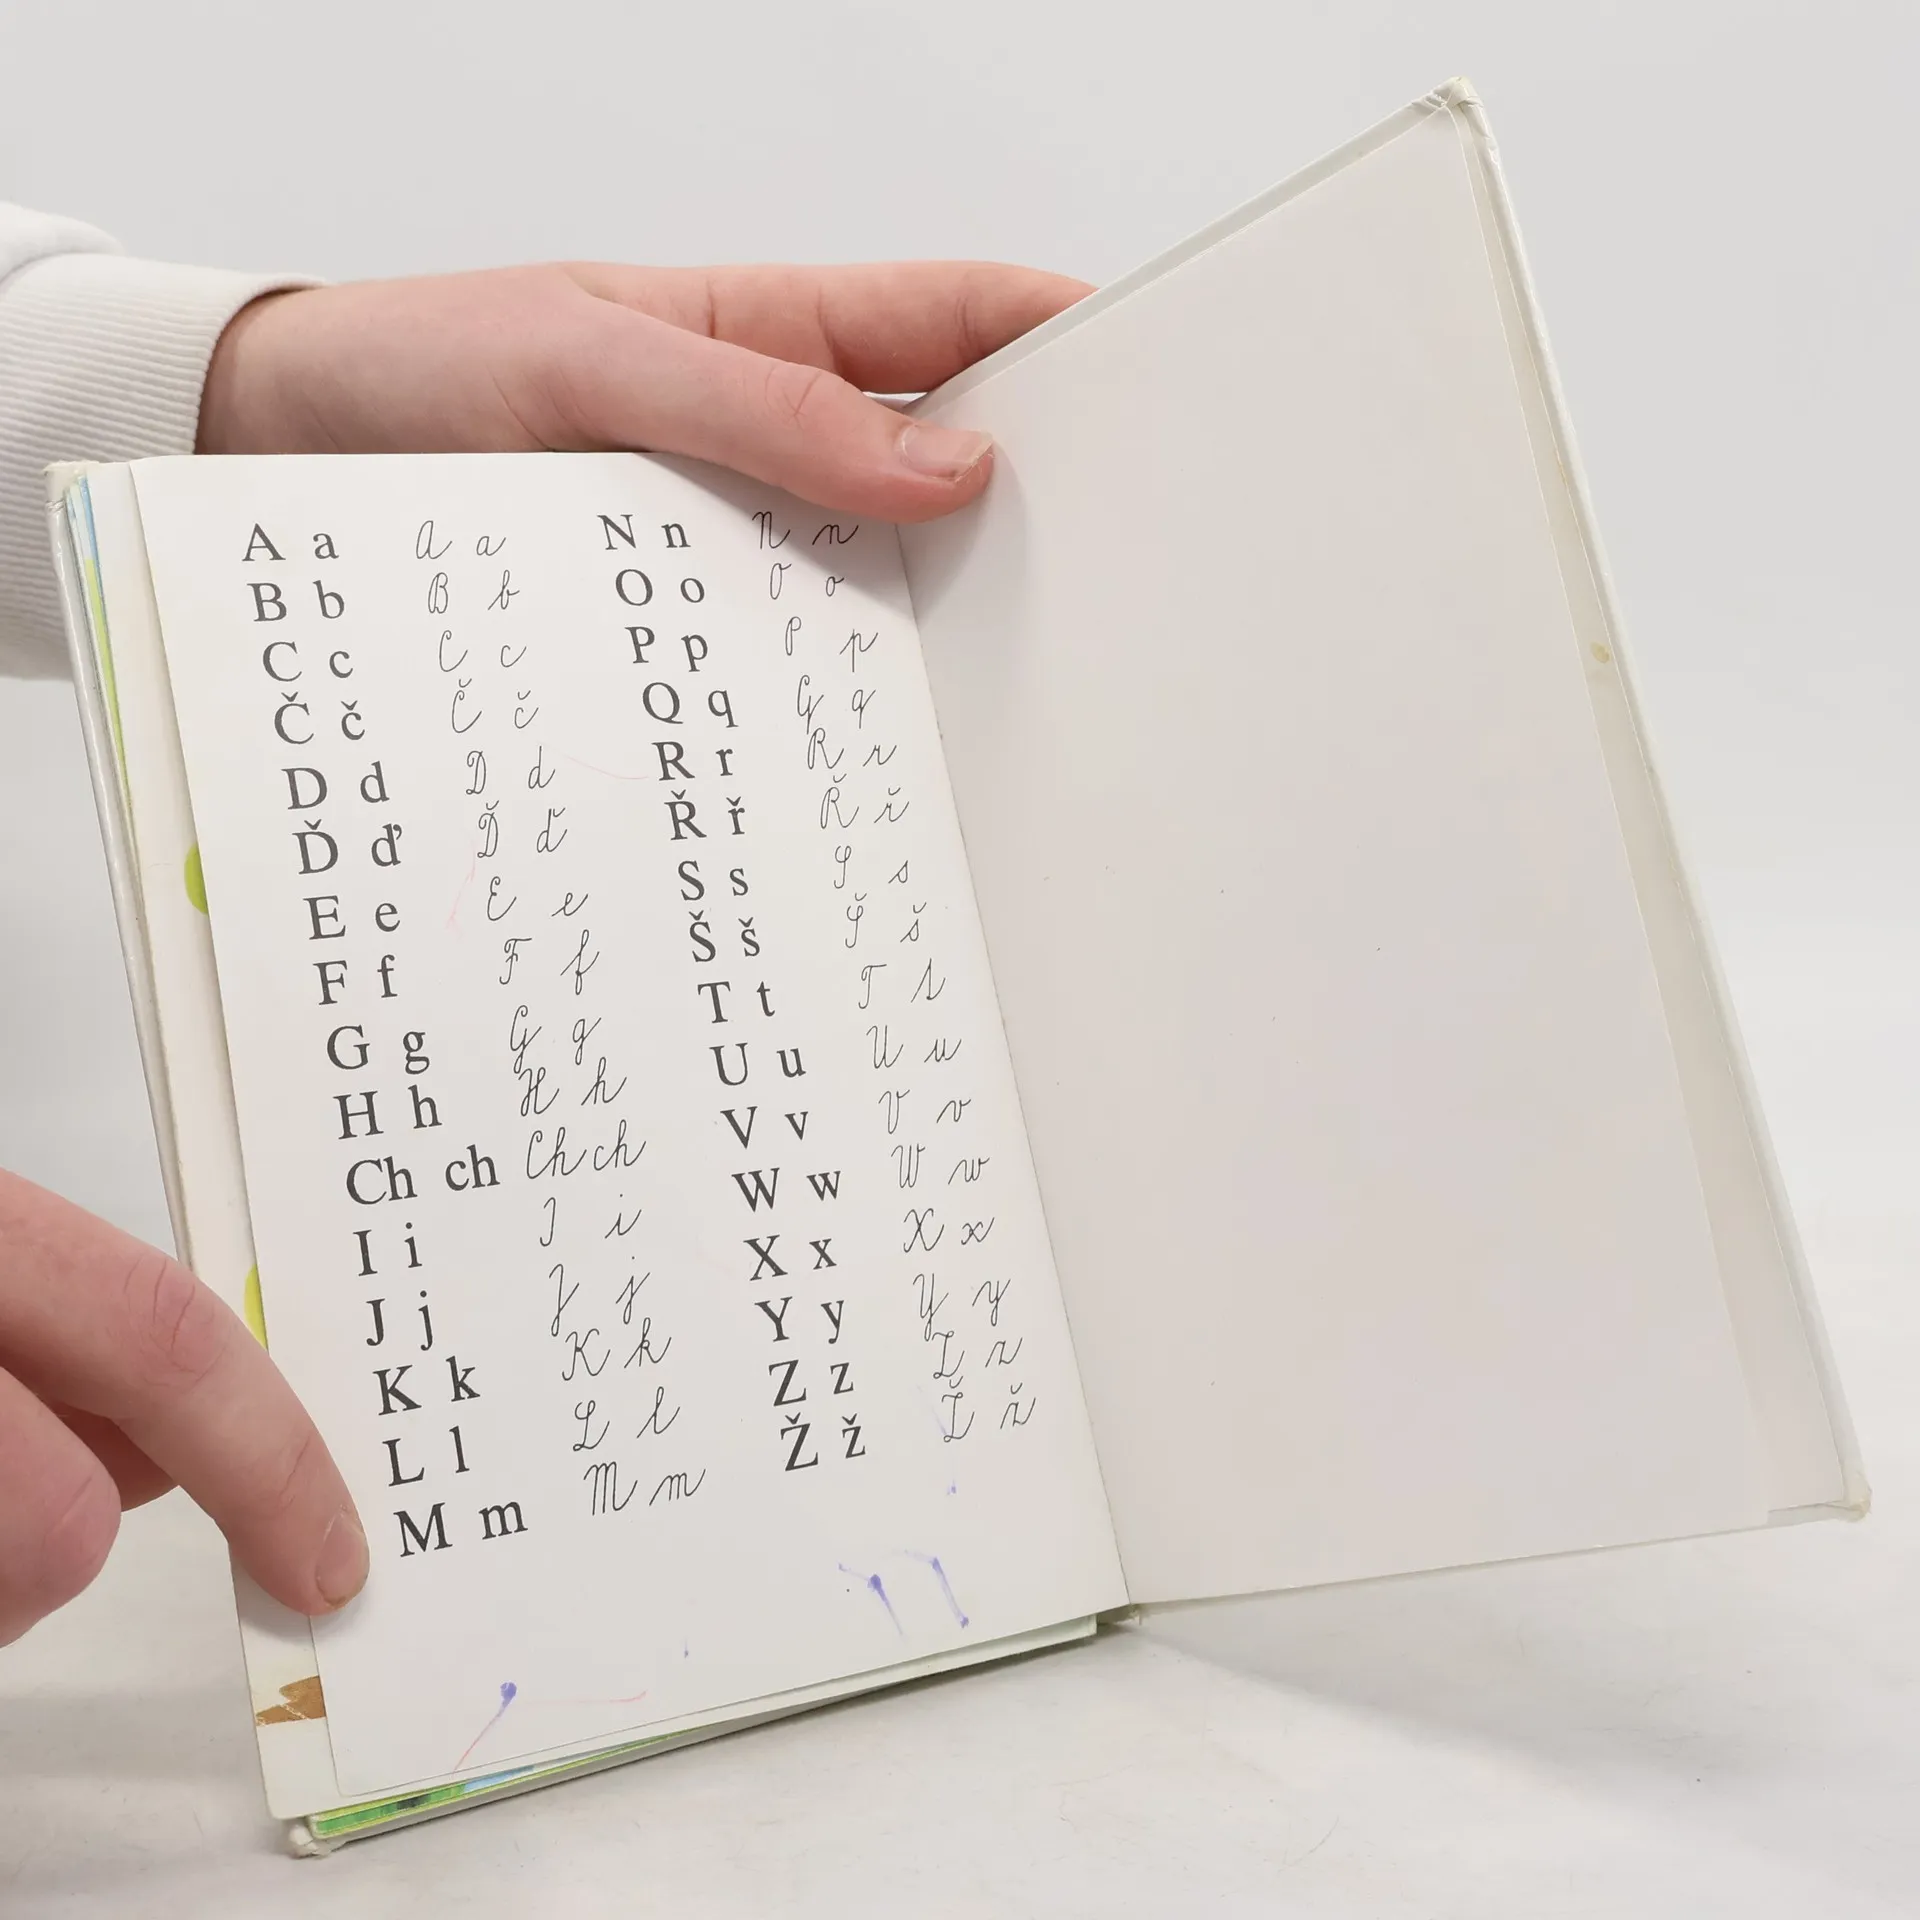 A a A a
B b B b
C c C c
Č č Č č
D d D d
Ď ď Ď ď
E e E e
F f F f
G g G g
H h H h
Ch ch Ch ch
I i I i
J j J j
K k K k
L l L l
M m M m
N n N n
O o O o
P p P p
Q q Q q
R r R r
Ř ř Ř ř
S s S s
Š š Š š
T t T t
U u U u
V v V v
W w W w
X x X x
Y y Y y
Z z Z z
Ž ž Ž ž